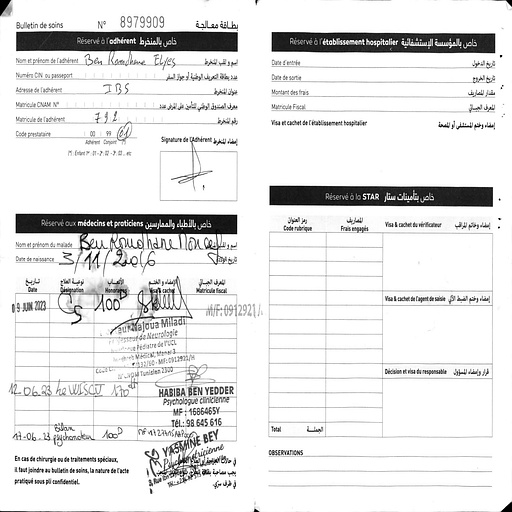 Bulletin de soins N° 8979909 بطاقة معالجة
Réservé à l'adhérent خاص بالمنخرط
Nom et prénom de l'adhérent Ben Romdhane Elyes اسم و لقب المنخرط
Numéro CIN ou passeport عدد بطاقة التعريف الوطنية أو جواز السفر
Adresse de l'adhérent IBS عنوان المنخرط
Matricule CNAM N° معرف الصندوق الوطني للتأمين على المرض عدد
Matricule de l'adhérent 792 رقم المنخرط
Code prestataire 00 99 01
Adhérent Conjoint (*)
(*) : Enfant 1er : 01 - 2e : 02 - 3e : 03 ... etc
Signature de l'Adhérent إمضاء المنخرط
Réservé aux médecins et praticiens خاص بالأطباء والممارسين
Nom et prénom du malade Ben Romdhane
Date de naissance 3/11/2016
تاريخ Date
نوعية العلاج Désignation
الأتعاب Honoraires
الإمضاء و الختم & cachet
المعرف الجبائي Matricule fiscal
09 JUIN 2023 100D M/F: 0912921/
Najoua Miladi
Professeur de Neurologie
Pédiatrie de l'UCL
Médical, Menzi 3
MF: 0912921/H
Tunisien 2300
12.06.23 Le WISC V 170
HABIBA BEN YEDDER
Psychologue clinicienne
MF : 1686465Y
Tél.: 98 645 616
17-06-23 Bilan psychomoteur 100D
YASMINE BEY
Psychomotricienne
En cas de chirurgie ou de traitements spéciaux,
il faut joindre au bulletin de soins, la nature de l'acte
pratiqué sous pli confidentiel.
في ظرف سري.
Réservé à l'établissement hospitalier خاص بالمؤسسة الإستشفائية
Date d'entrée تاريخ الدخول
Date de sortie تاريخ الخروج
Montant des frais مقدار المصاريف
Matricule Fiscal المعرف الجبائي
Visa et cachet de l'établissement hospitalier إمضاء وختم المستشفى أو المصحة
Réservé à la STAR خاص بتأمينات ستار
رمز العنوان Code rubrique
المصاريف Frais engagés
Visa & cachet du vérificateur إمضاء وخاتم المراقب
Visa & cachet de l'agent de saisie إمضاء وختم الضبط الآلي
Décision et visa du responsable قرار وإمضاء المسؤول
Total الجملة
OBSERVATIONS